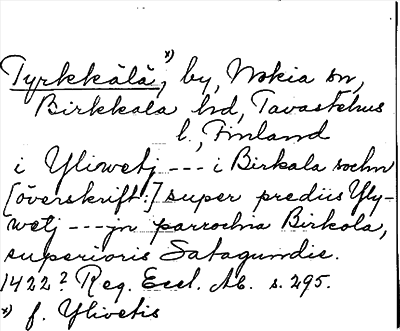 Tyrkkälä,*) by, Nokia sn,
Birkkala hd, Tavastehus
l., Finland
i Yliwetj --- i Birkala sochn
[överskrift:] super prediis Yly-
wetj --- jn parrochia Birkola,
superioris Satagundie.
1422? Reg. Eccl. Ab. s. 295.
*) f. Ylivetis